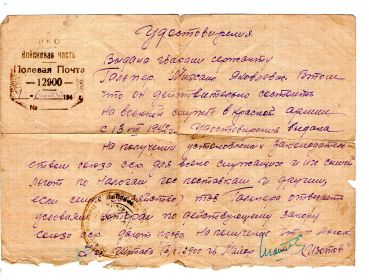 НКО
Войсковая часть
Полевая Почта
12900
194
№
Удостоверения
Выдана гвардии сержанту
Гальперу Михаил Яковлевич В том
что он действительно состоит
на военной службе в Красной армии
с 13 VII 1942 г. Удостоверения выдана
на получения установленых законодатель
ством союза сср для военно служащих и их семей
льгот по налогам гос поставкам и другим
если семья тов Гальперо отвечает
условиям которая по действующему закону
союза сср дают право на получения этих льгот
Нач штаба 12900 гв Майор (Изотов)